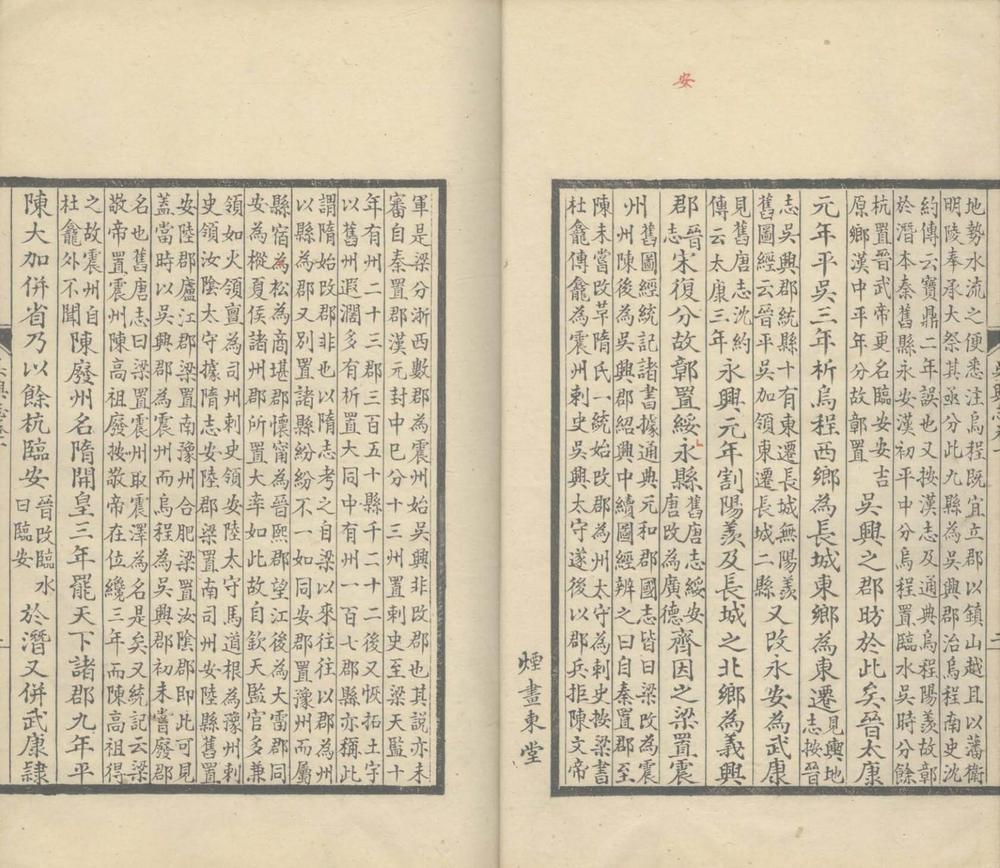 安
地勢水流之便悉注烏程既宜立郡以鎮山越且以藩衛
明陵奉承大祭其亟分此九縣為吳興郡治烏程南史沈
約傳云寶鼎二年誤也又按漢志及通典烏程陽羨故鄣
於潛本秦舊縣永安漢初平中分烏程置臨水吳時分餘
杭置晉武帝更名臨安安吉
原鄉漢中平年分故鄣置
吳興之郡昉於此矣晉太康
元年平吳三年析烏程西鄉為長城東鄉為東遷見輿地志按晉
志吳興郡統縣十有東遷長城無陽羨
舊圖經云晉平吳加領東遷長城二縣
又改永安為武康
見舊唐志沈約
傳云太康三年
永興元年割陽羨及長城之北鄉為義興
郡晉志宋復分故鄣置綏永縣舊唐志綏安唐改為廣德齊因之梁置震
州舊圖經統記諸書據通典元和郡國志皆曰梁改為震
州陳後為吳興郡紹興中續圖經辨之曰自秦置郡至
陳未嘗改革隋氏一統始改郡為州太守為刺史按梁書
杜龕傳龕為震州刺史吳興太守遂後以郡兵拒陳文帝
煙畫東堂
軍是梁分浙西數郡為震州始吳興非改郡也其說亦未
審自秦置郡漢元封中已分十三州置刺史至梁天監十
年有州二十三郡三百五十縣千二十二後又恢拓土宇
以舊州遐濶多有析置大同中有州一百七郡縣亦稱此
謂隋始改郡非也以隋志考之自梁以來往往以郡為州
以縣為郡又別置諸縣紛紛不一如同安郡置豫州而屬
縣宿為松為高塘郡懷甯為晉熙郡望江後為大雷郡同
安為樅夏侯諸州郡所置大率如此故自欽天監官多兼
領如火領亶為司州刺史領安陸太守馬道根為豫州刺
史領汝陰太守據隋志安陸郡梁置南司州安陸縣舊置
安陸郡廬江郡梁置南豫州合肥梁置汝陰郡即此可見
蓋當時以吳興郡為震州而烏程為吳興郡初未嘗廢郡
名也舊唐志曰梁置震州取震澤為名是矣又統記云梁
敬帝置震州陳高祖廢按敬帝在位纔三年而陳高祖得
之故震州自
杜龕外不聞
陳廢州名隋開皇三年罷天下諸郡九年平
陳大加併省乃以餘杭臨安晉改臨水曰臨安於潛又併武康隸